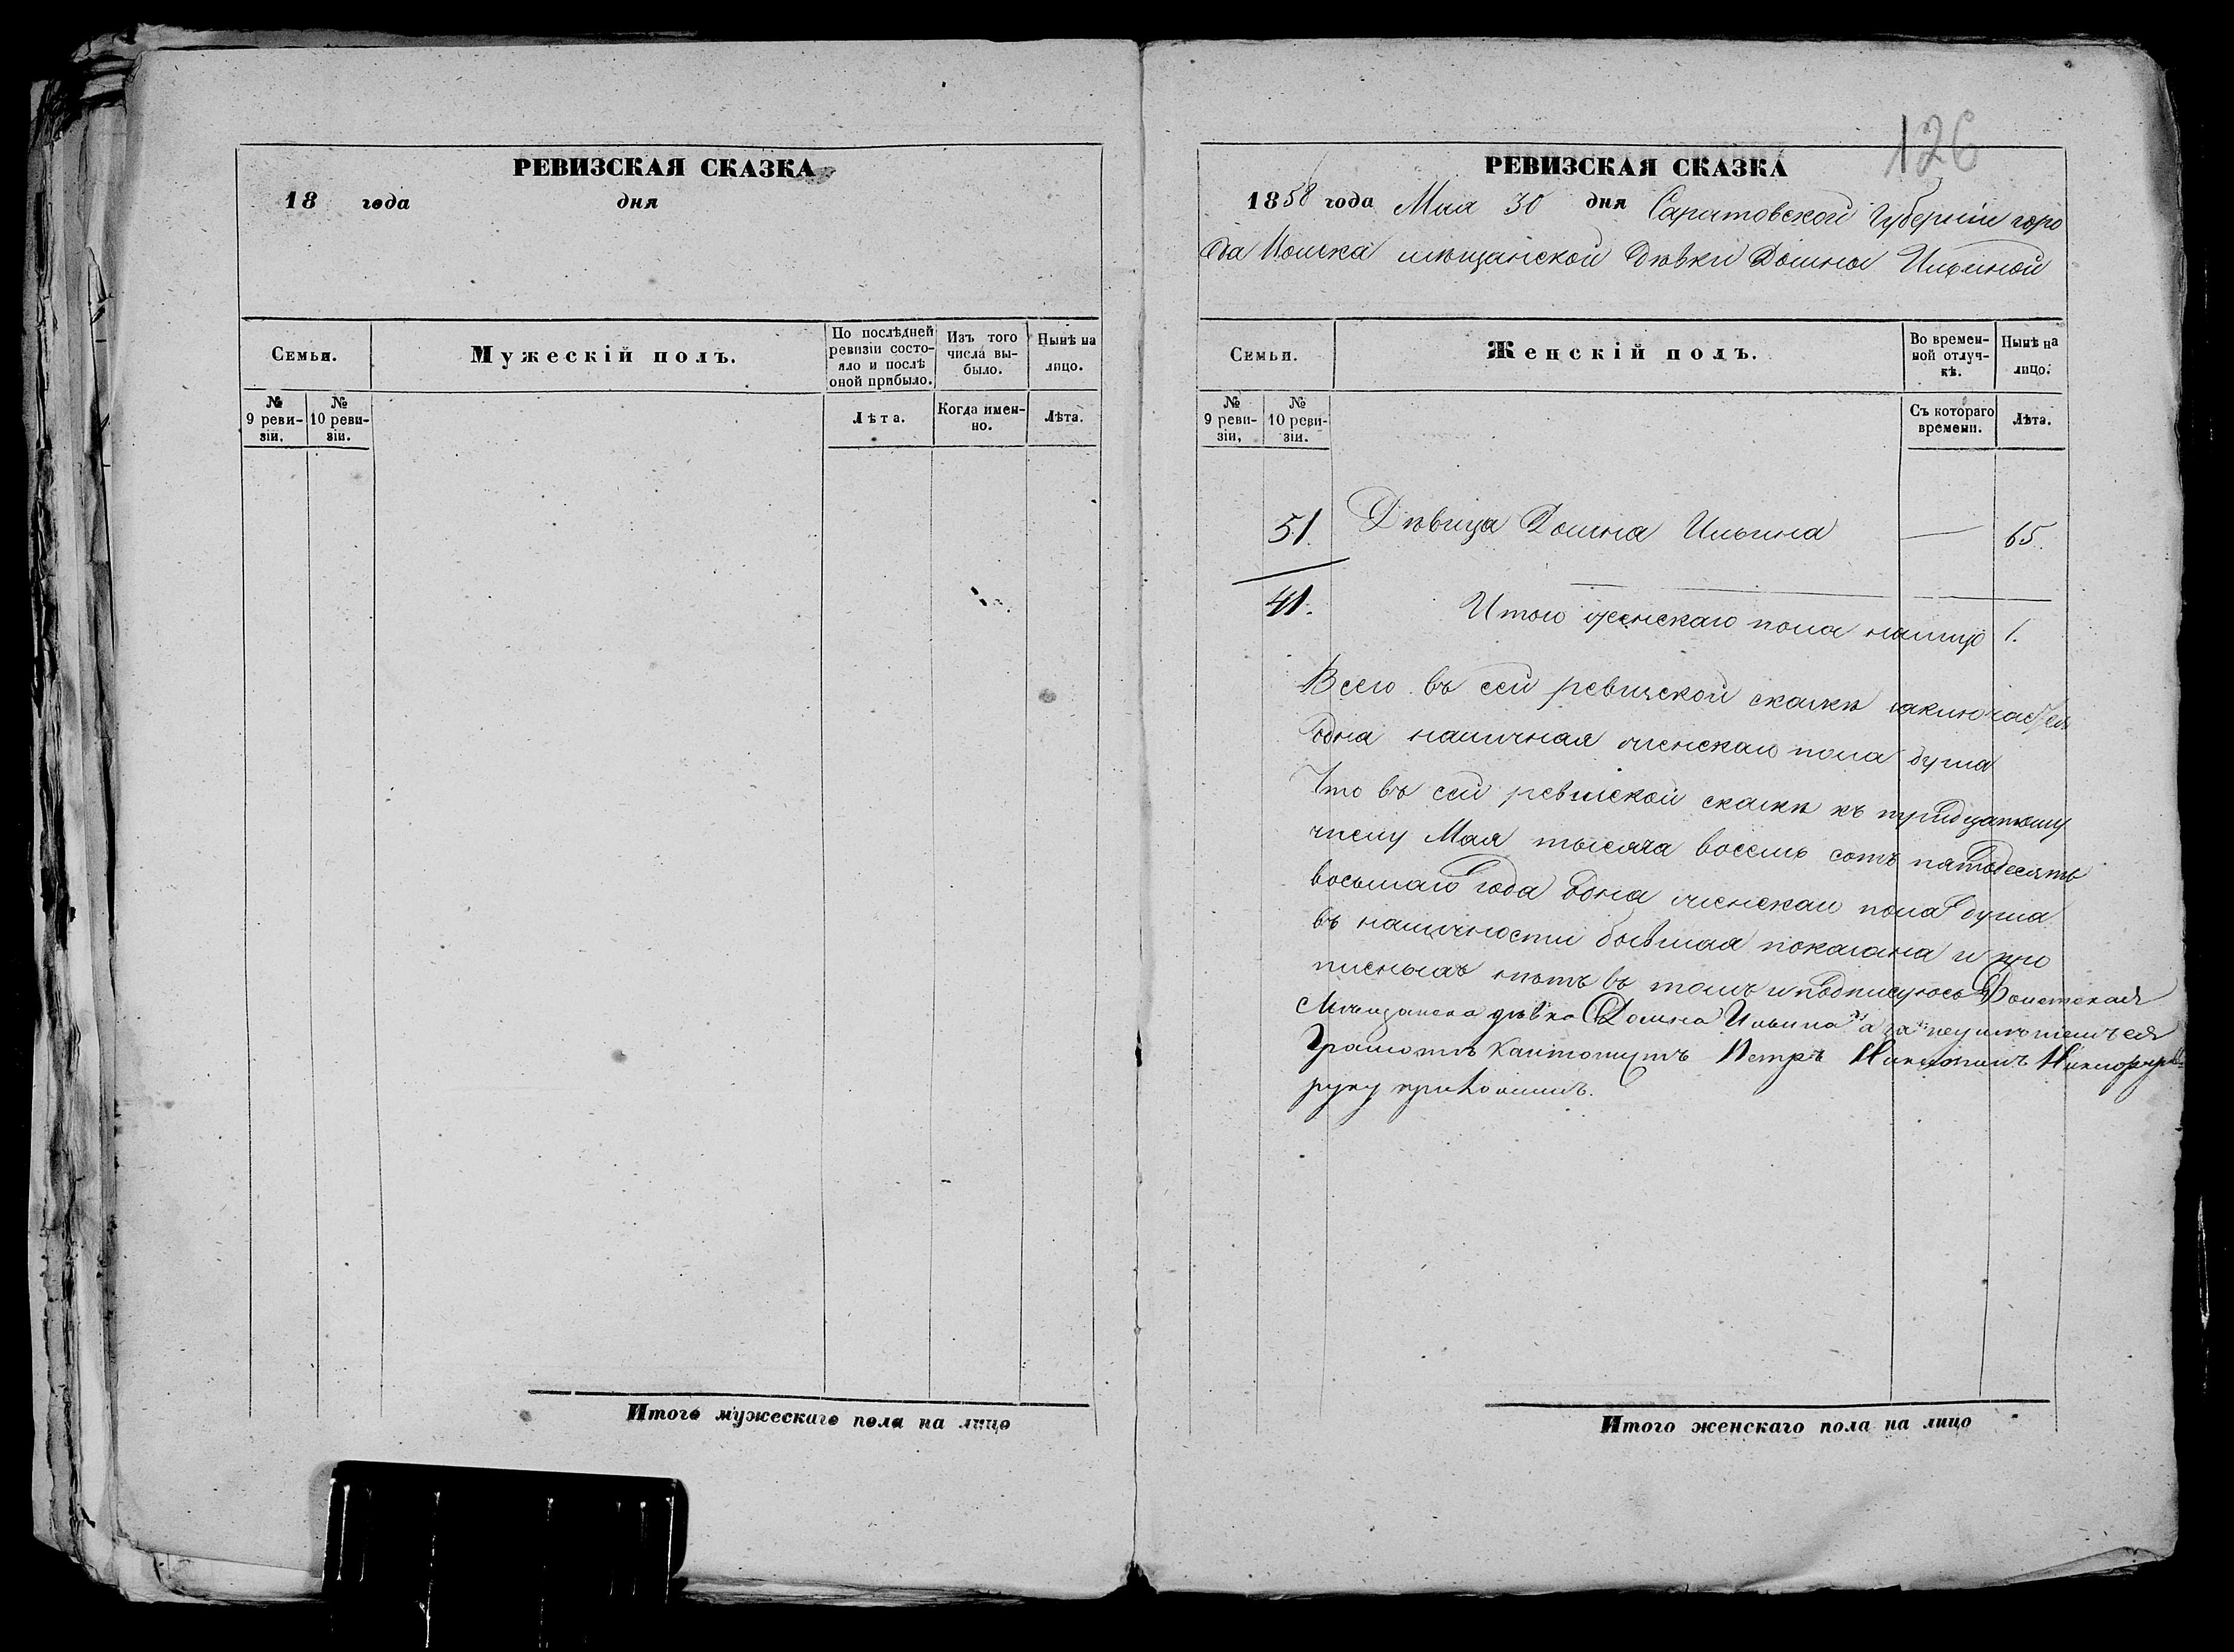 РЕВИЗСКАЯ СКАЗКА
18 года дня
Семьи.
Мужескій полъ.
По послѣдней ревизіи состояло и послѣ оной прибыло.
Изъ того числа выбыло.
Нынѣ на лицо.
№ 9 ревизіи.
№ 10 ревизіи.
Лѣта.
Когда именно.
Лѣта.
Итого мужескаго пола на лицо
126
РЕВИЗСКАЯ СКАЗКА
1858 года Мая 30 дня Саратовской Губерніи горо
да мѣщанской дѣвки Домны Ильиной
Семьи.
Женскій полъ.
Во временной отлучкѣ.
Нынѣ на лицо.
№ 9 ревизіи,
№ 10 ревизіи.
Съ котораго времени.
Лѣта.
51. Дѣвица Домна Ильина — 65.
41. Итого женскаго пола налицо 1.
Всего въ сей ревизской сказкѣ заключается
одна наличная женскаго пола душа
Что въ сей ревизской сказкѣ къ тридцатому
числу Мая тысяча восемь сотъ пятьдесятъ
восьмаго года одна женскаго пола душа
въ наличности бывшая показана и про
писныхъ нѣтъ въ томъ и подписуюсь
дѣвка Домна Ильина а за неумѣніемъ ея
Грамотѣ Петръ
руку приложилъ.
Итого женскаго пола на лицо